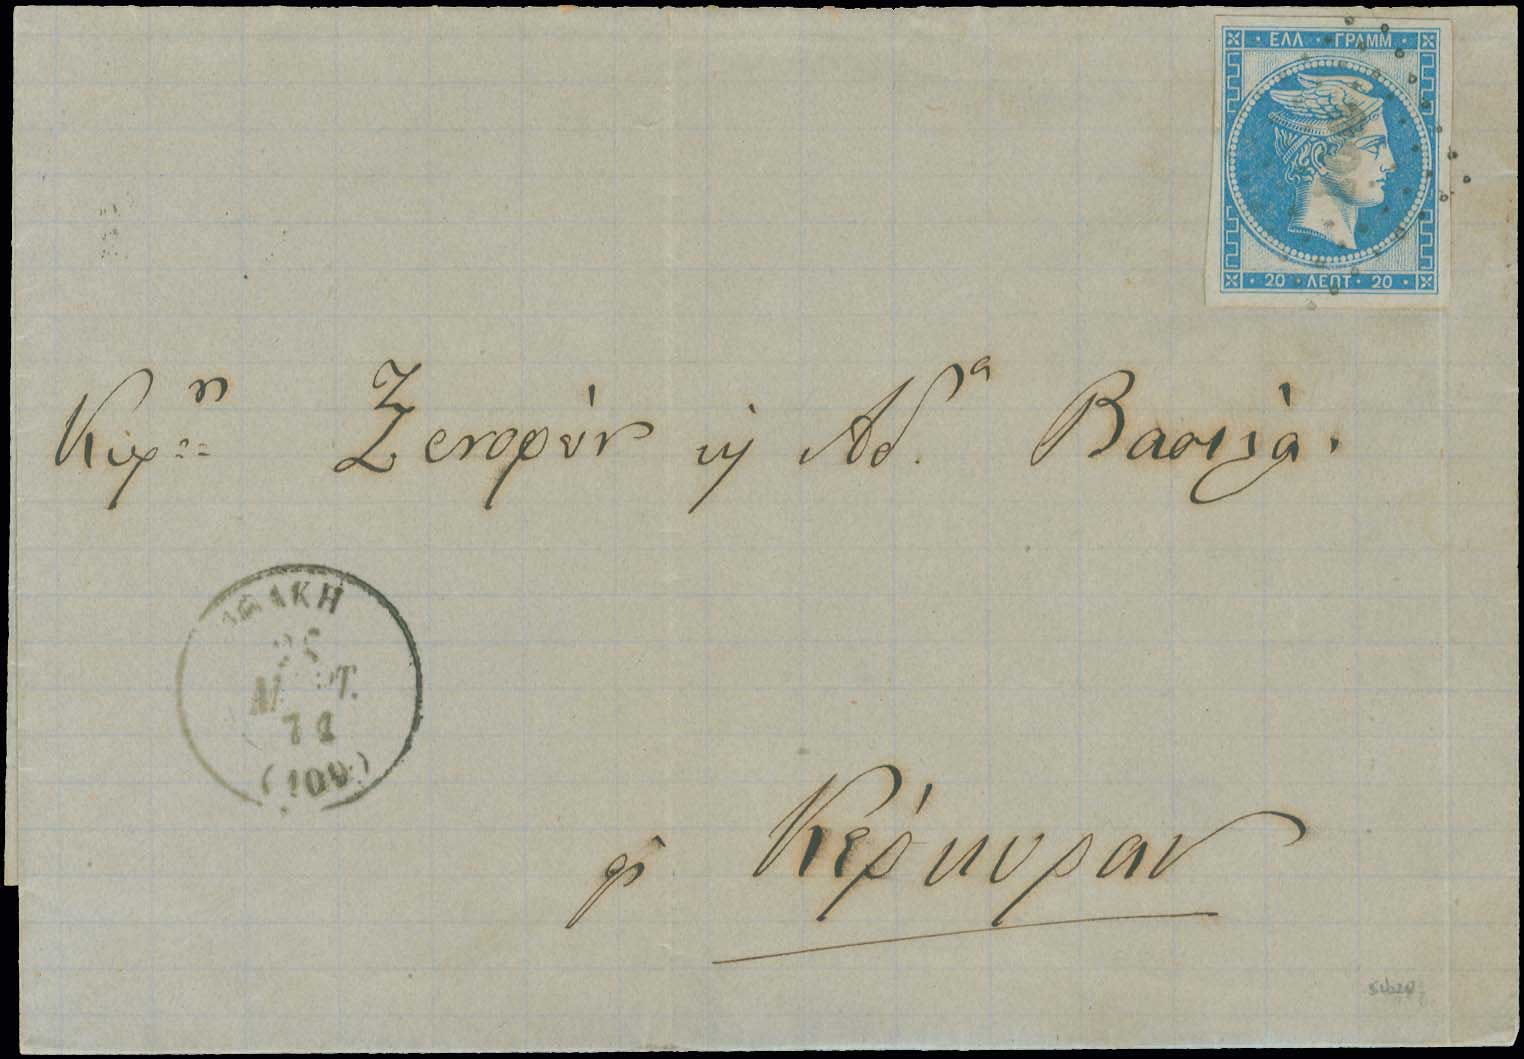 ΕΛΛ · ΓΡΑΜΜ
20 · ΛΕΠΤ · 20
Κυρ. Ξενοφών κ Αδ.ᵃ Βασιλᾶ.
ΙΘΑΚΗ
ΜΑΡΤ.
71
(109)
Κέρκυραν